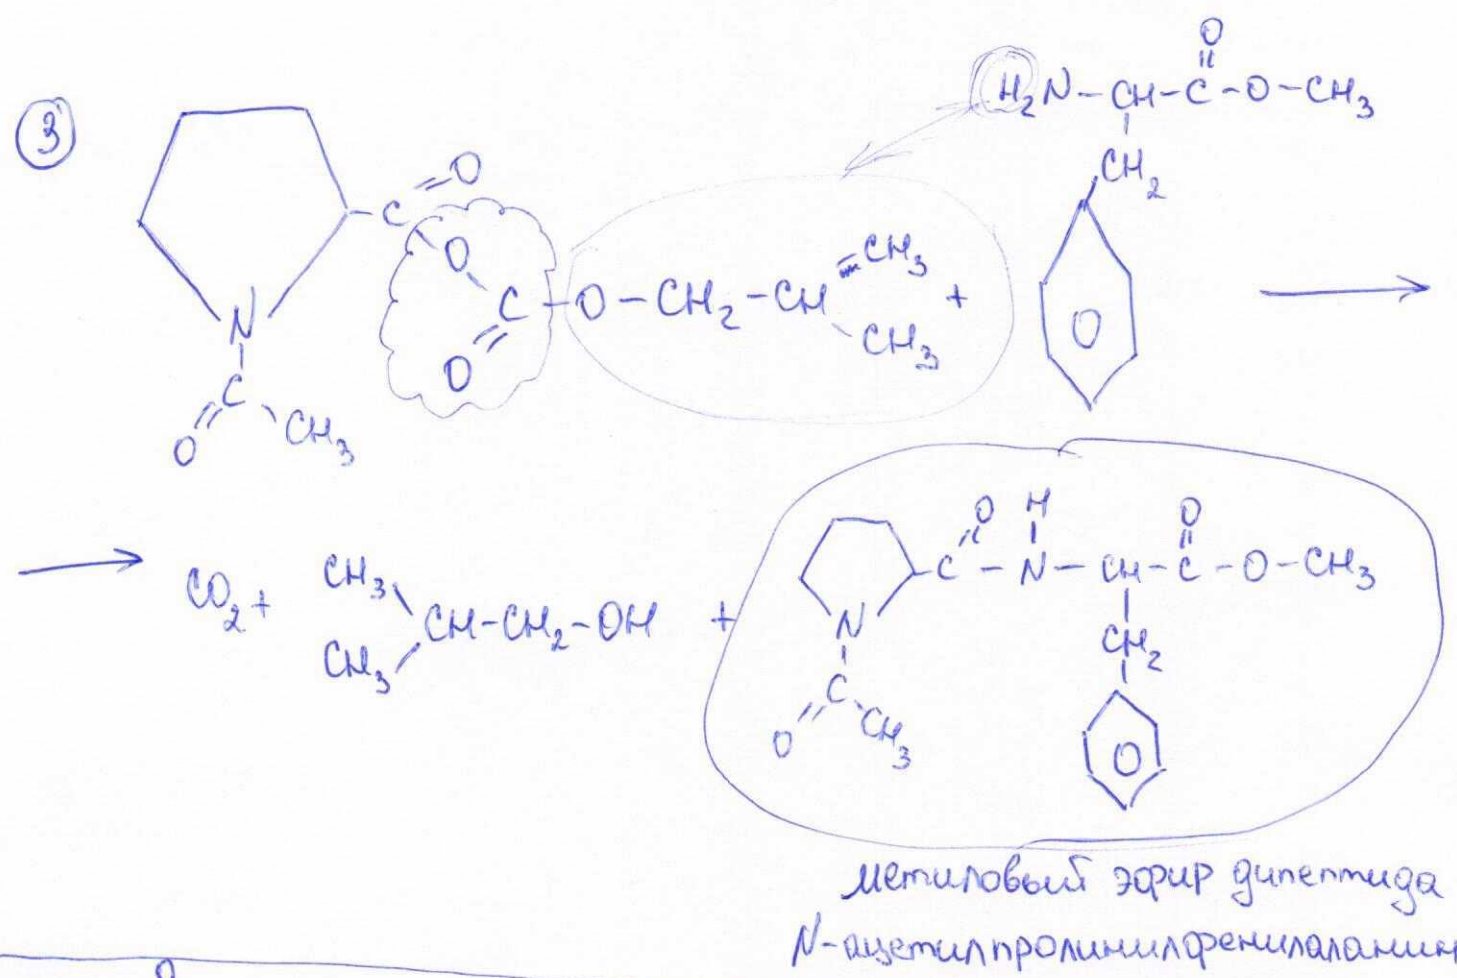 3
H₂N-CH-C-O-CH₃
O
CH₂
O
C=O
O
C-O-CH₂-CH=CH₃
CH₃
O
N
C
O
CH₃
+
CO₂ +
CH₃
CH₃
CH-CH₂-OH
+
O H O
C-N-CH-C-O-CH₃
N
CH₂
C
O
CH₃
O
метиловый эфир дипептида
N-ацетилпролинилфенилаланин